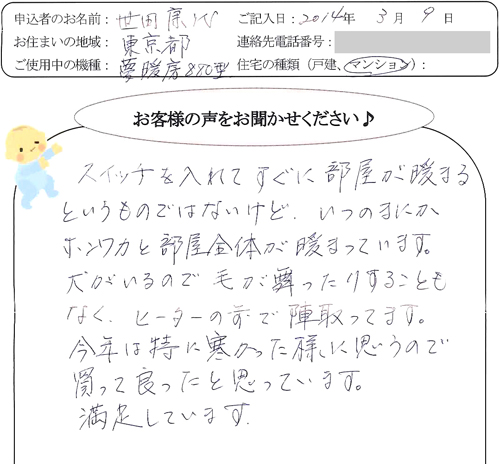 申込者のお名前： 世田 康代 ご記入日：2014年 3月 9日
お住まいの地域： 東京都 連絡先電話番号：
ご使用中の機種： 夢暖房890型 住宅の種類（戸建、マンション）：
お客様の声をお聞かせください♪
スイッチを入れてすぐに部屋が暖まる
というものではないけど、いつのまにか
ホンワカと部屋全体が暖まっています。
犬がいるので毛が舞ったりすることも
なく、ヒーターの前で陣取ってます。
今年は特に寒かった様に思うので
買って良ったと思っています。
満足しています.